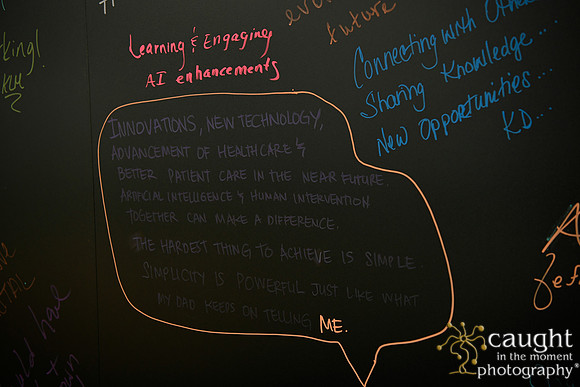 future
Learning & Engaging
AI enhancements
Connecting with Others
Sharing Knowledge...
New Opportunities...
KD...
INNOVATIONS, NEW TECHNOLOGY,
ADVANCEMENT OF HEALTHCARE &
BETTER PATIENT CARE IN THE NEAR FUTURE.
ARTIFICIAL INTELLIGENCE & HUMAN INTERVENTION
TOGETHER CAN MAKE A DIFFERENCE.
THE HARDEST THING TO ACHIEVE IS SIMPLE.
SIMPLICITY IS POWERFUL JUST LIKE WHAT
MY DAD KEEPS ON TELLING ME.
caught
in the moment
photography®